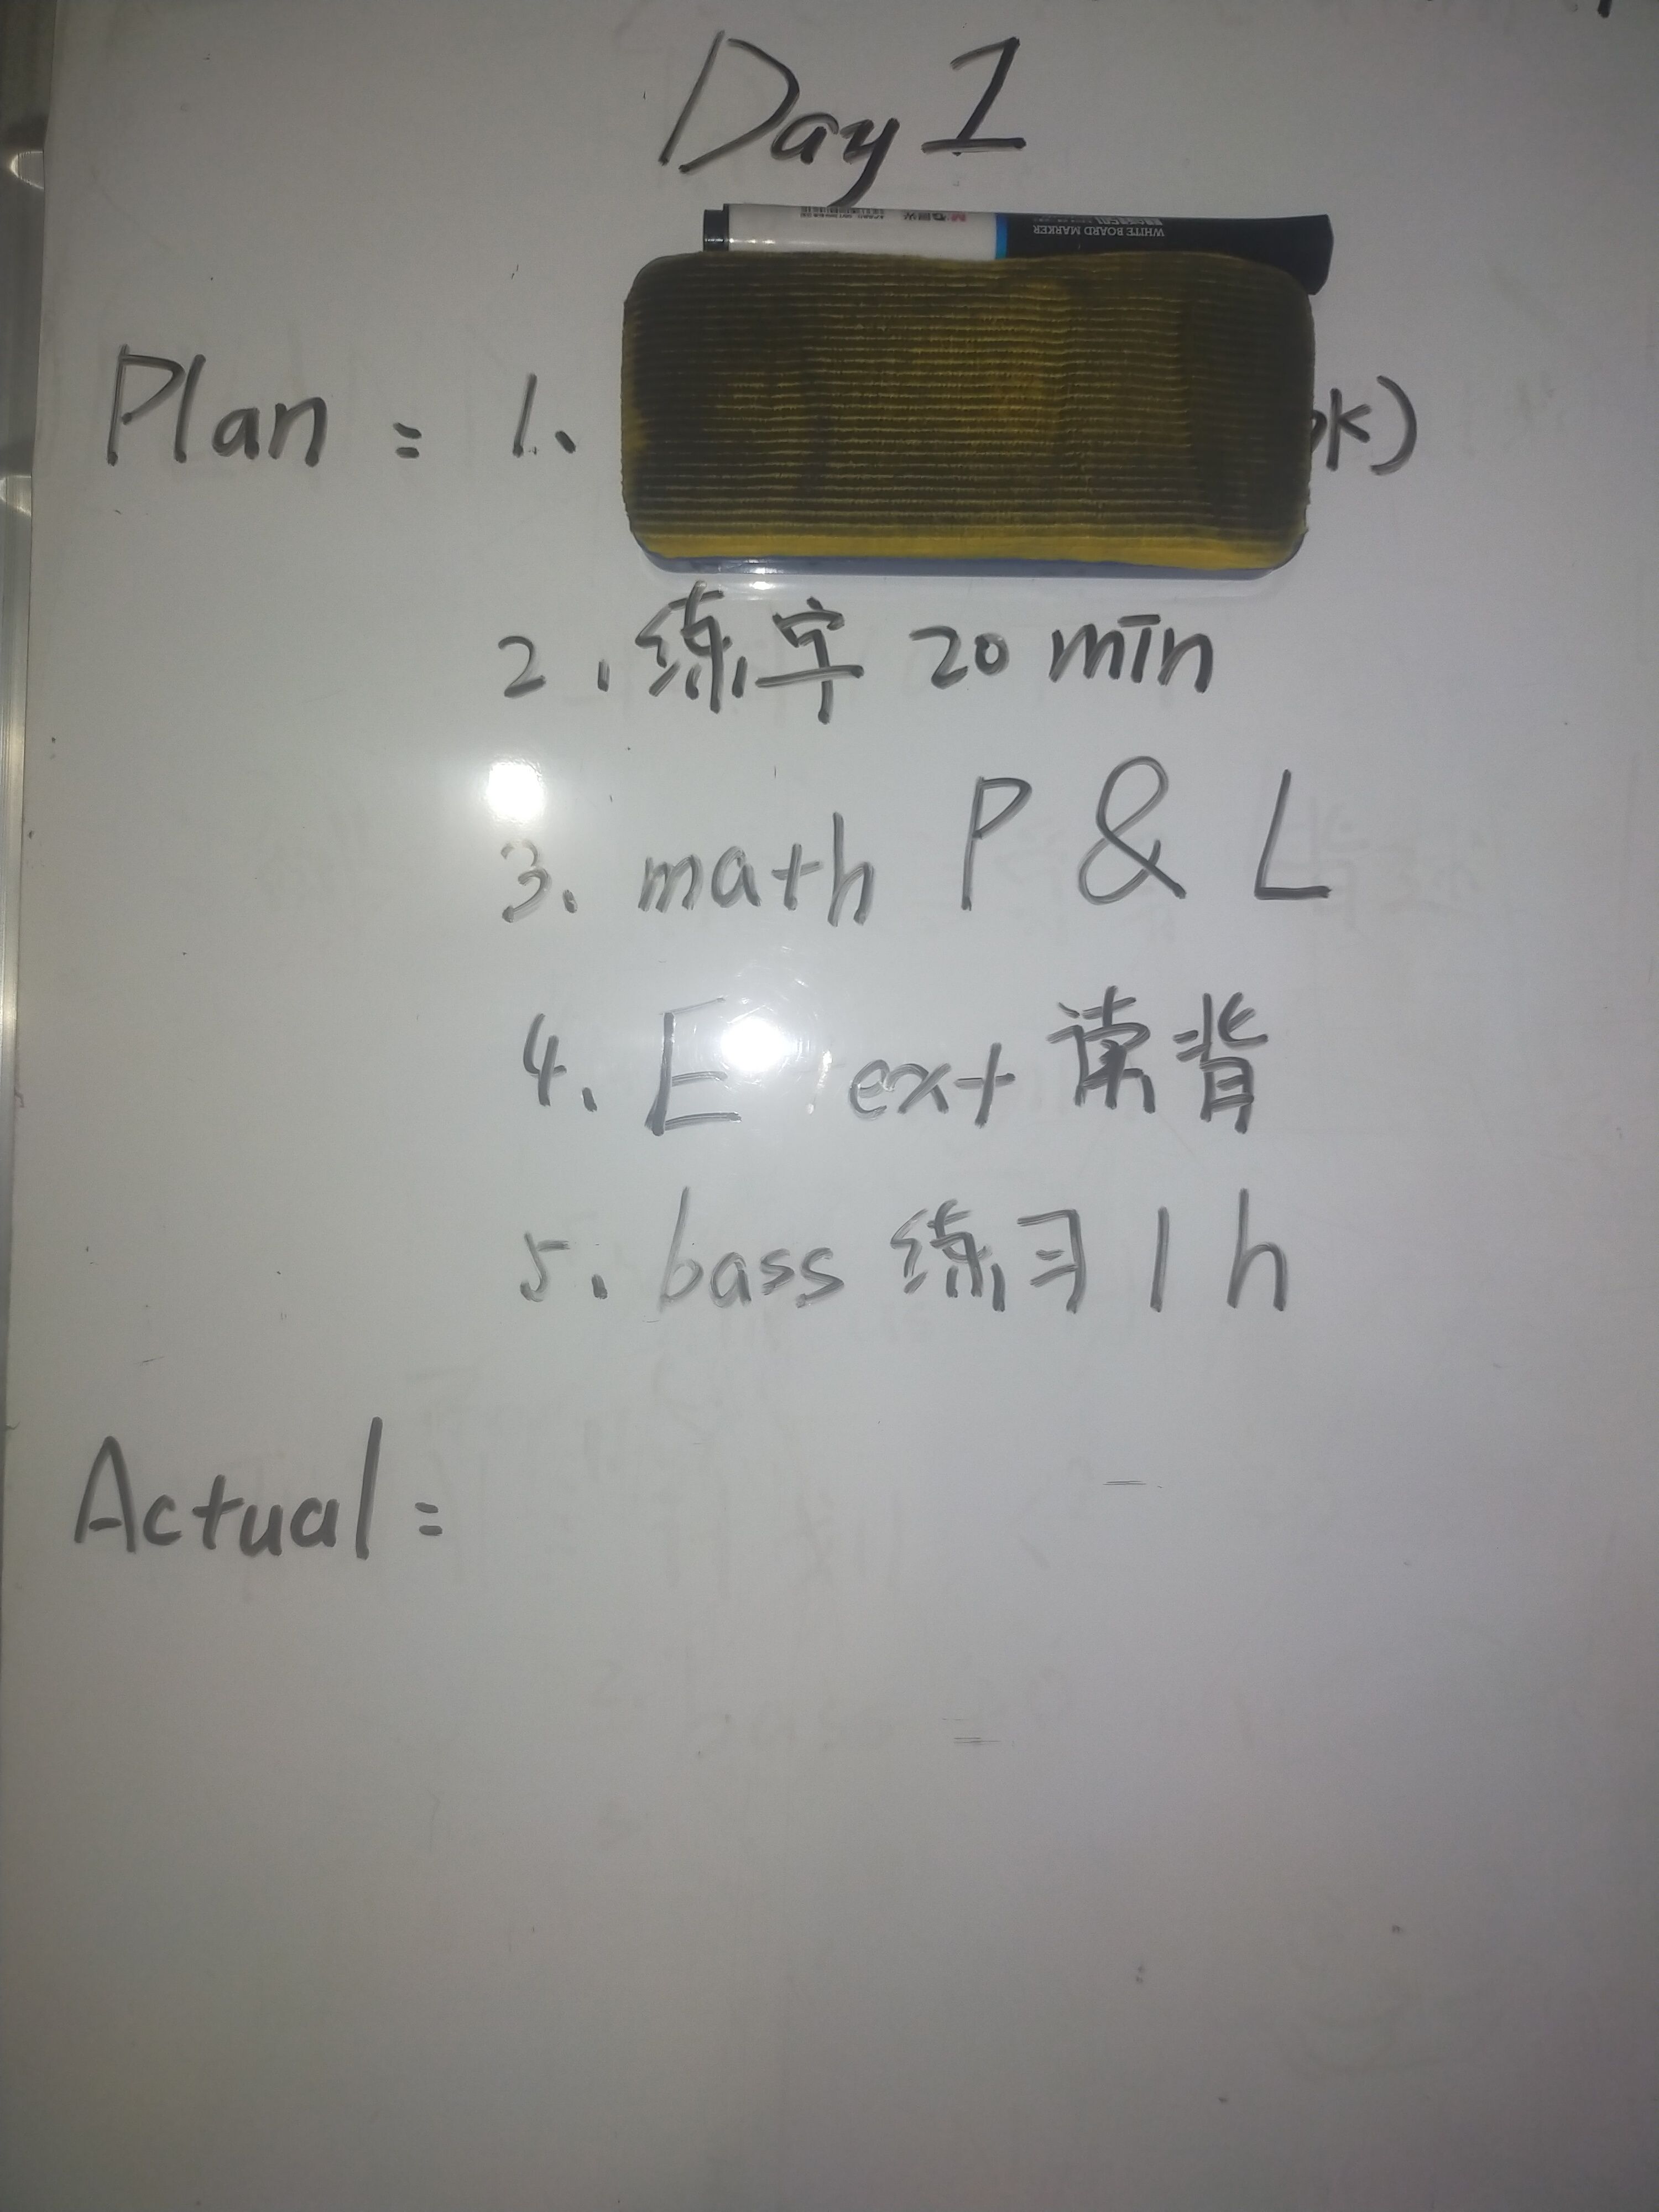 Day 1
WHITE BOARD MARKER
Plan = 1.
2. 练字 20 min
3. math P & L
4. E ext 读背
5. bass 练习 1 h
Actual =